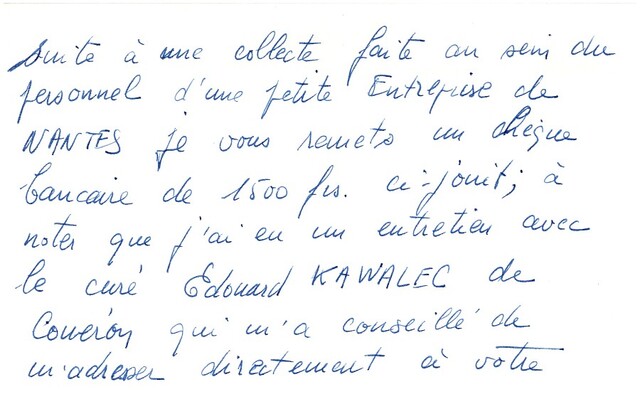 suite à une collecte faite au sein du
personnel d'une petite Entreprise de
NANTES je vous remets un chèque
bancaire de 1500 frs. ci-joint; à
noter que j'ai eu un entretien avec
le curé Edouard KAWALEC de
Couëron qui m'a conseillé de
m'adresser directement à votre